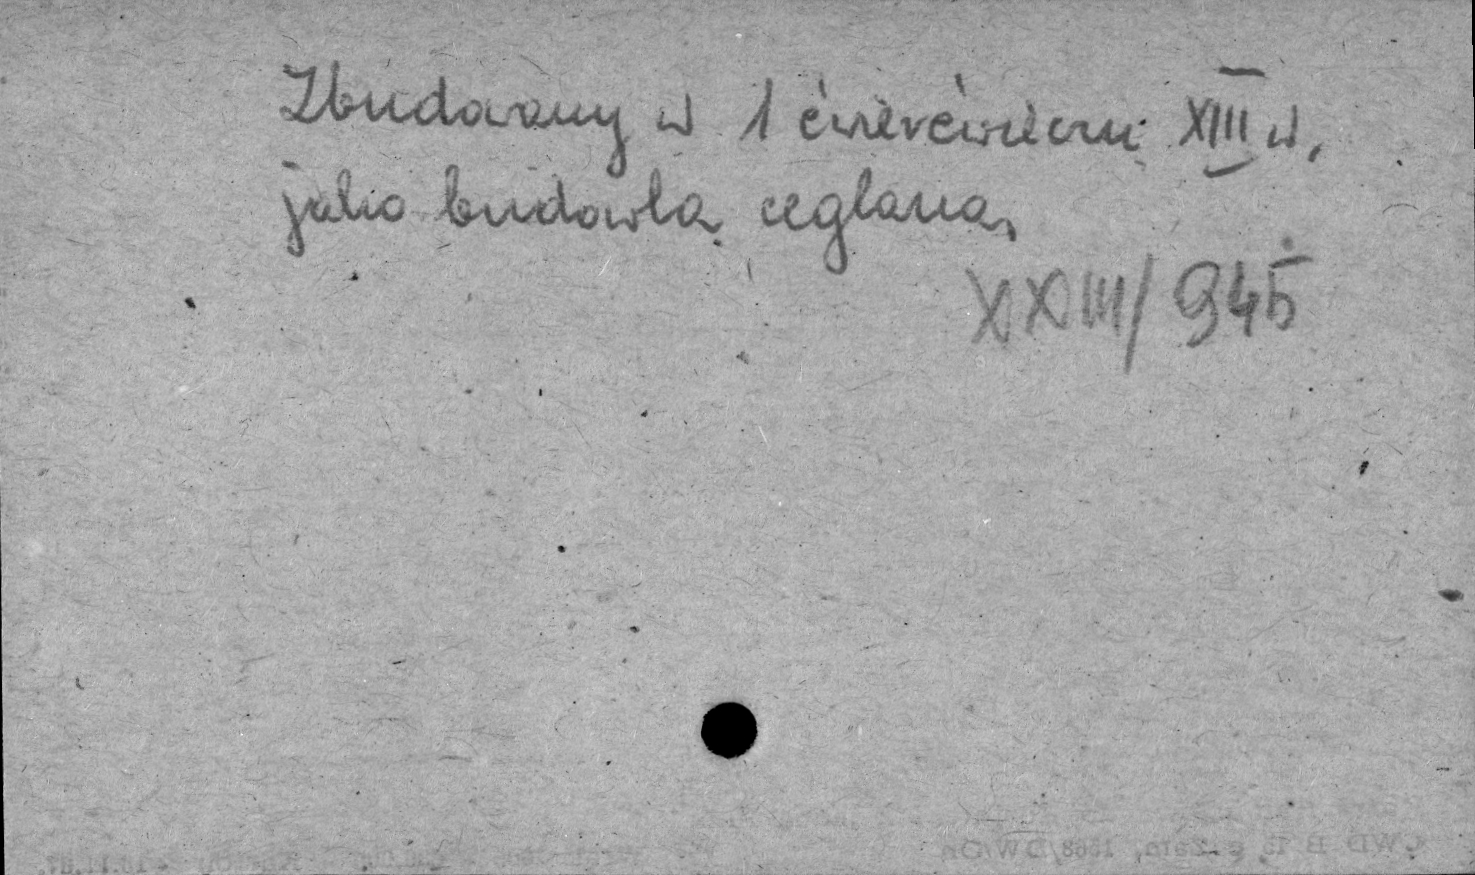 Zbudowany w 1 ćwierćwieczu XIII w.
jako budowla ceglana,
XXIII/945